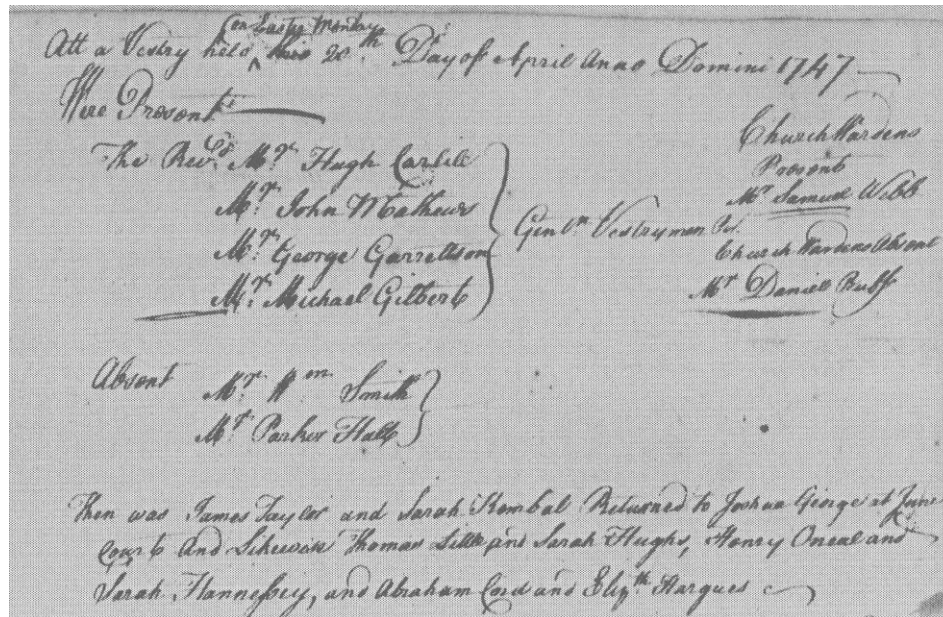 on Easter Monday
Att a Vestry held this 20th Day of April Anno Domini 1747
Were Present
The Revd. Mr. Hugh Carlile
Mr. John Mathews
Mr. George Garrettson
Mr. Michael Gilbert
Gentn. Vestrymen
Church Wardens
Present
Mr Samuel Webb
Church Wardens Absent
Mr Daniel Ruff
Absent
Mr. Wm. Smith
Mr. Parker Hall
Then was James Taylor and Sarah Kembal Returned to Joshua George at June
Court And Likewise Thomas and Sarah Hughs, Henry Oneal and
Sarah Hannessey, and Abraham Cord and Elizth. Hargues